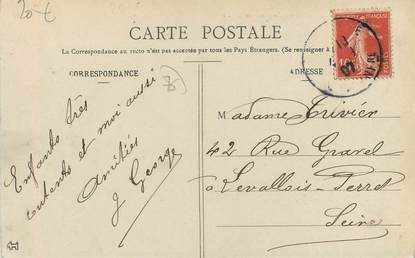 20 €
CARTE POSTALE
La Correspondance au recto n'est pas acceptée par tous les Pays Étrangers. (Se renseigner à
CORRESPONDANCE
ADRESSE
76
Enfants très
contents et moi aussi
Amitiés
J George
Madame Trivier
42 Rue Gravel
à Levallois-Perret
Seine